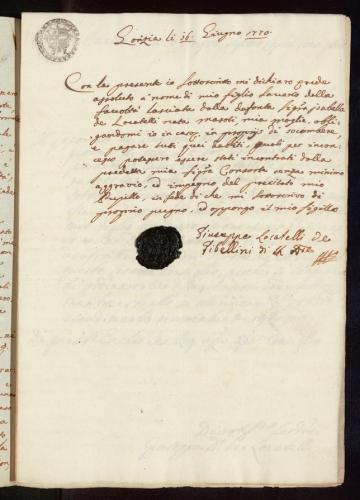 Gorizia li 16 Giugno 1770
Con la presente io Sottoscritto mi dichiaro erede
assoluto a nome di mio figlio della
facoltà lasciata dalla defonta Sigra Isabella
de Locatelli nata mia moglie, obli-
gandomi io in caso, in proprijs di socombere,
e pagare tutti quei debiti, quali per incon-
cesso potessero essere stati incontrati dalla
predetta mia Sigra Consorte senza minimo
aggravio, ed impegno del precitato mio
Pupillo, in fede di che mi sottoscrivo di
proprio pugno, ed oppongo il mio sigillo
Giuseppe Locatelli de
di